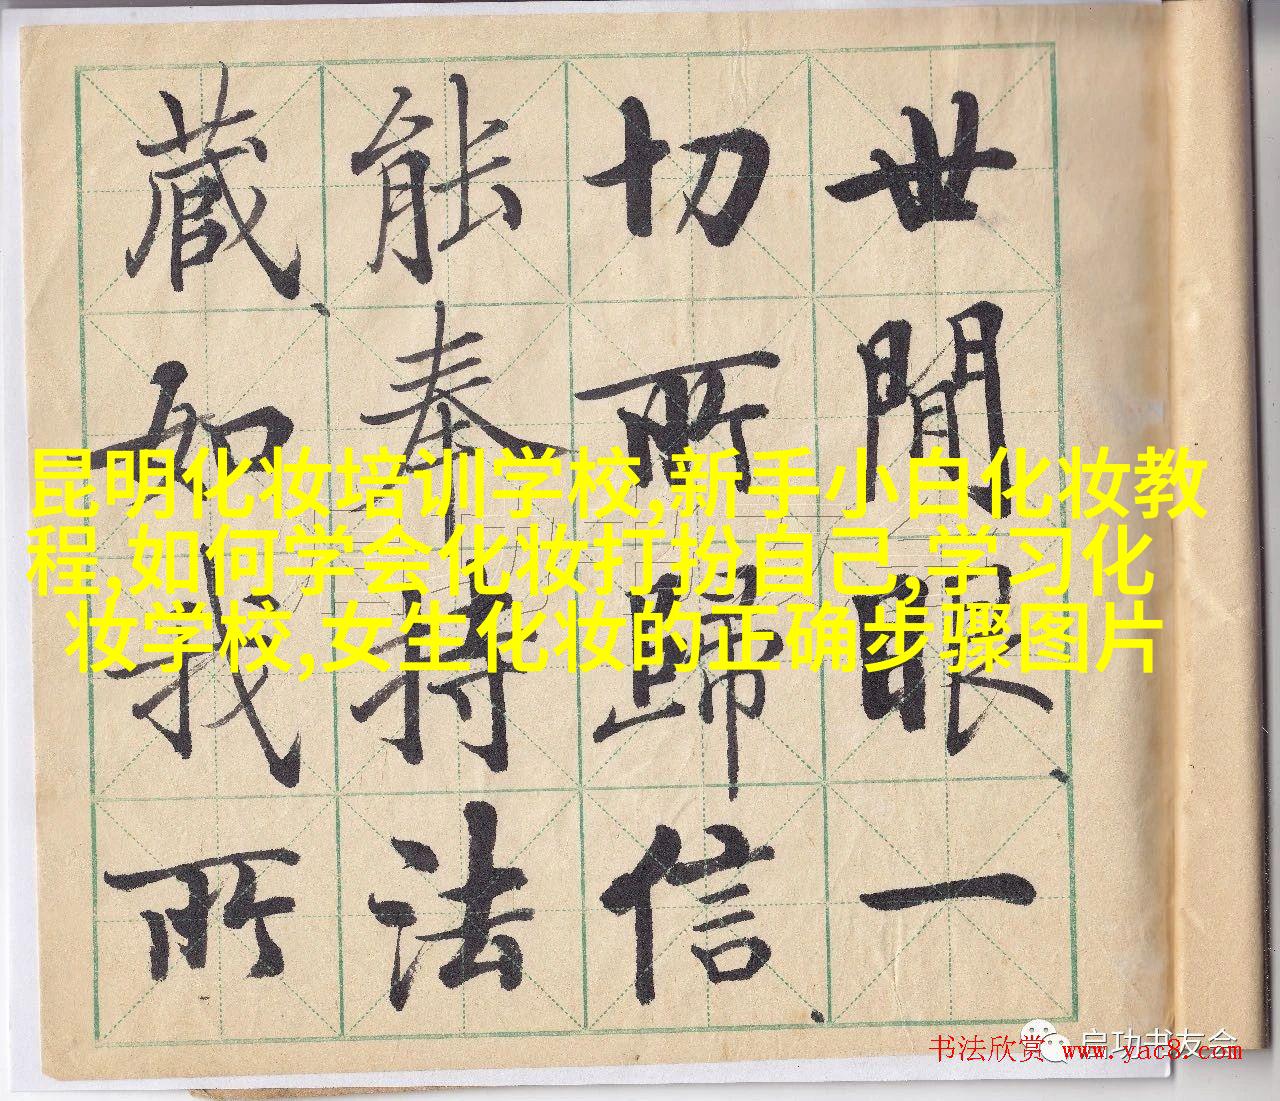 世間眼一
切所歸信
能奉持法
藏如我所
昆明化妆培训学校,新手小白化妆教
程,如何学会化妆打扮自己,学习化
妆学校,女生化妆的正确步骤图片
启功书友会
书法欣赏 www.yac8.com